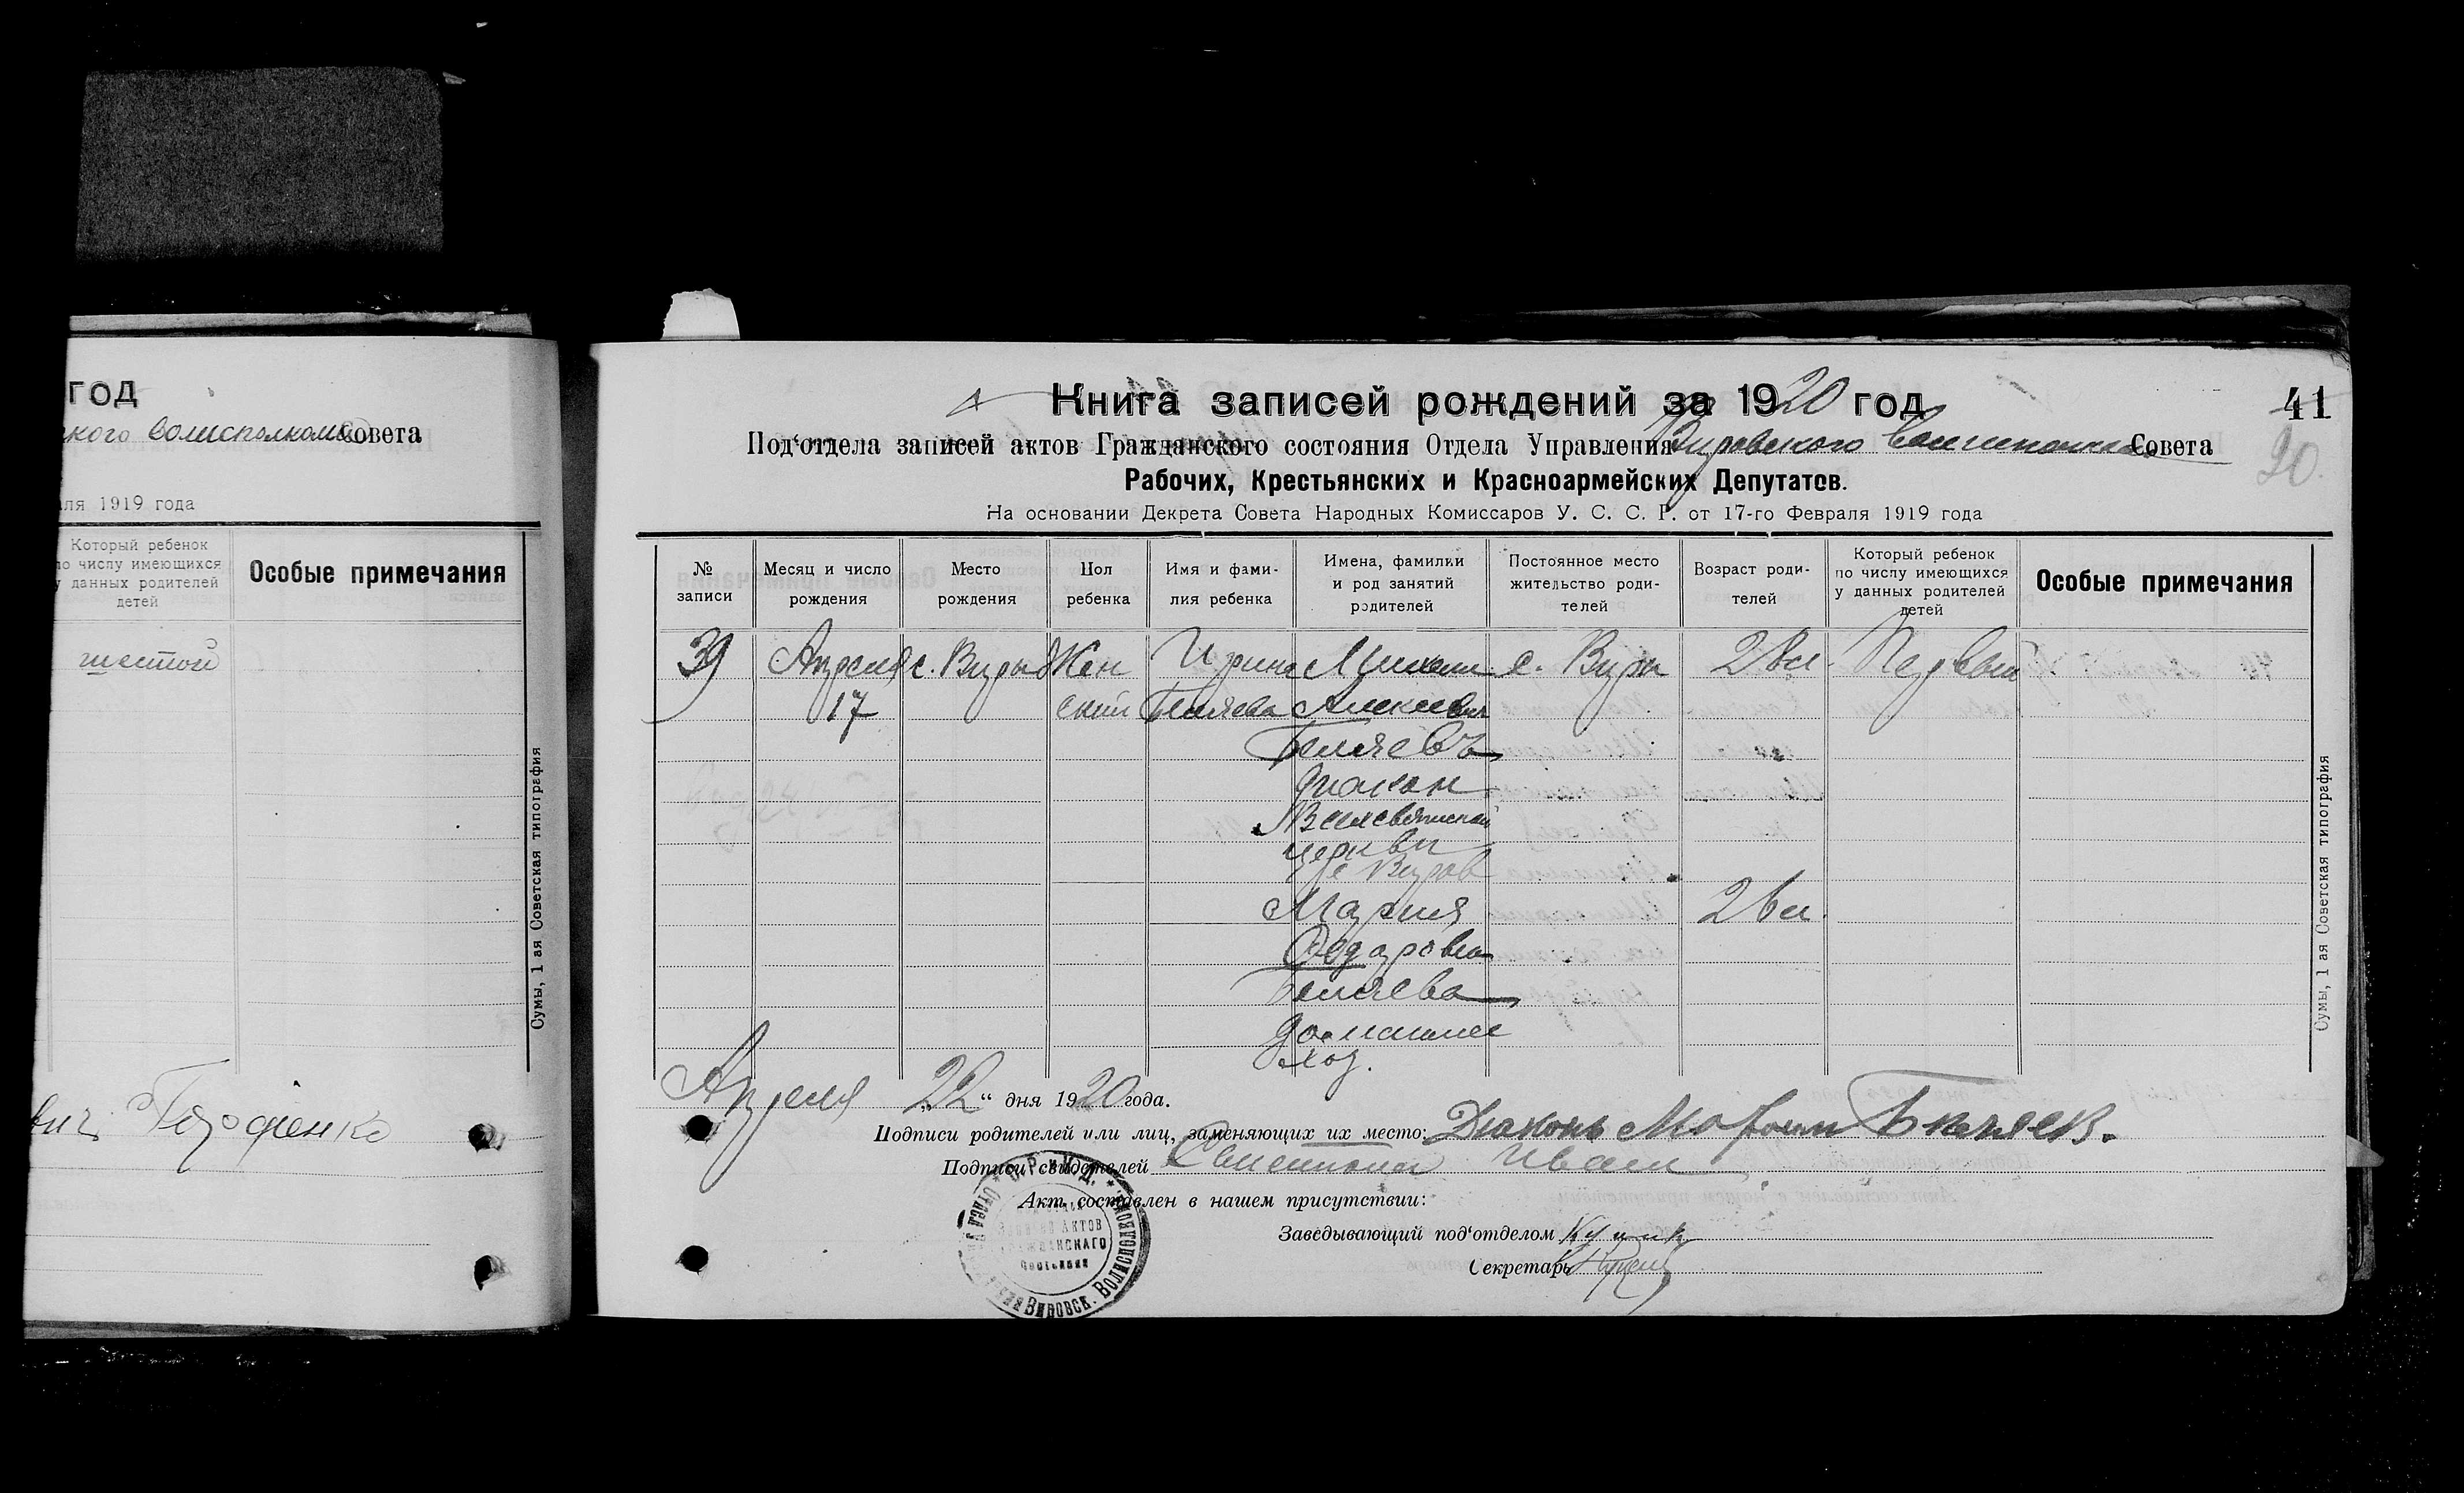 год
кого волисполкома Совета
ля 1919 года
Который ребенок
по числу имеющихся
у данных родителей
детей
Особые примечания
шестой
Сумы, 1 ая Советская типография
Книга записей рождений за 1920 год
41
Под'отдела записей актов Гражданского состояния Отдела Управления Вировского Волисполкома Совета
20.
Рабочих, Крестьянских и Красноармейских Депутатов.
На основании Декрета Совета Народных Комиссаров У. С. С. Р. от 17-го Февраля 1919 года
№ записи
Месяц и число рождения
Место рождения
Пол ребенка
Имя и фами-
лия ребенка
Имена, фамилии
и род занятий
родителей
Постоянное место
жительство роди-
телей
Возраст роди-
телей
Который ребенок
по числу имеющихся
у данных родителей
детей
Особые примечания
39 Апреля с. Виры Жен Ирина с. Виры Первый
17 ский Беляева Алексеевич
Беляевъ
диакон
церкви
Мария
Федоровна
Беляева
домашнее
хоз.
Сумы, 1 ая Советская типография
Апреля „22“ дня 1920 года.
Подписи родителей или лиц, заменяющих их место: Дiаконъ Беляев.
Подписи свидетелей Иван
Акт составлен в нашем присутствии:
Заведывающий под'отделом
Секретарь